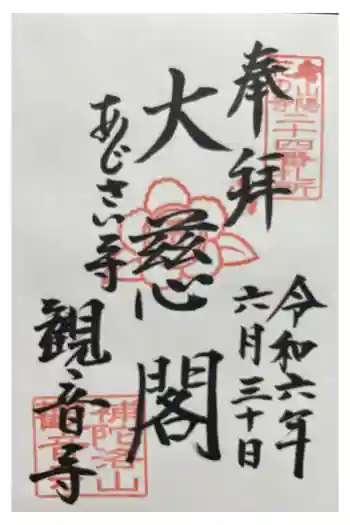 奉拝
山陽花の寺二十四番札所
令和六年
六月三十日
大慈閣
あじさい寺
観音寺
補陀洛山
観音寺